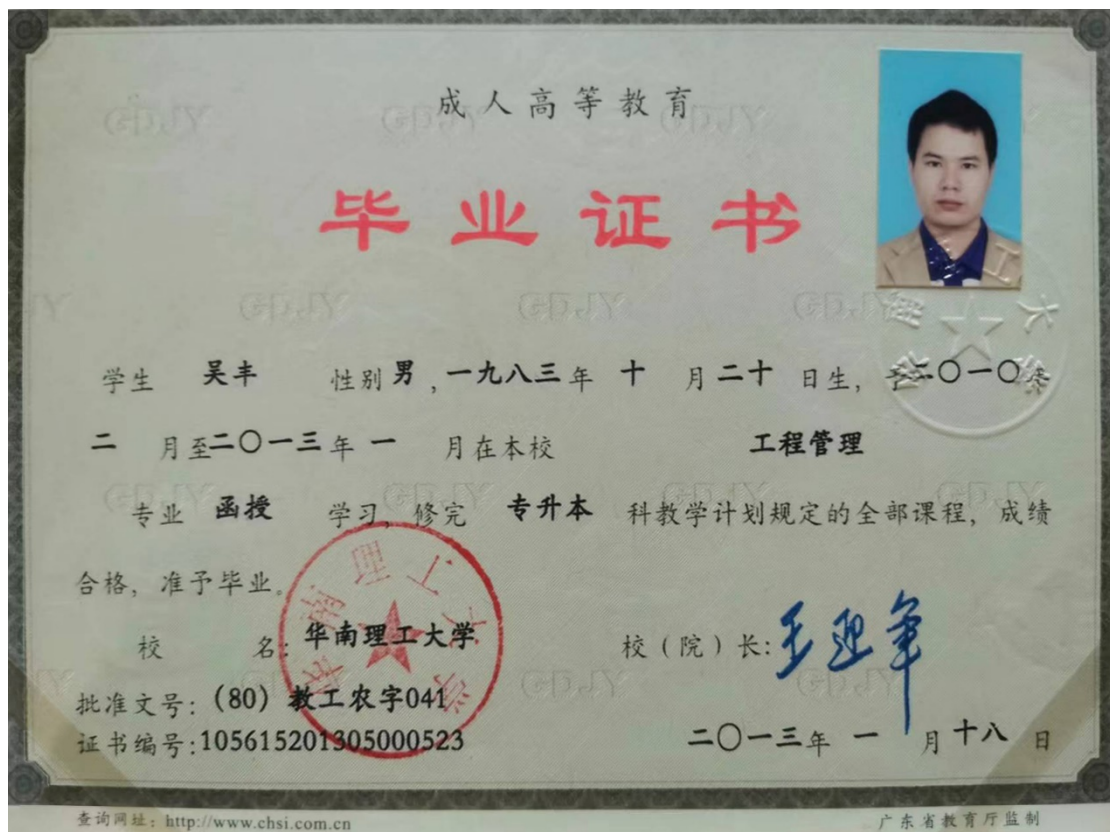 成人高等教育
毕业证书
学生 吴丰 性别 男，一九八三年 十 月二十 日生，于二〇一〇年
二 月至二〇一三年 一 月在本校 工程管理
专业 函授 学习，修完 专升本 科教学计划规定的全部课程，成绩
合格，准予毕业。
校 名：华南理工大学
校（院）长：王迎军
批准文号：（80）教工农字041
证书编号：105615201305000523
二〇一三年 一 月十八 日
查询网址：http://www.chsi.com.cn
广东省教育厅监制
华南理工大学
GDJY